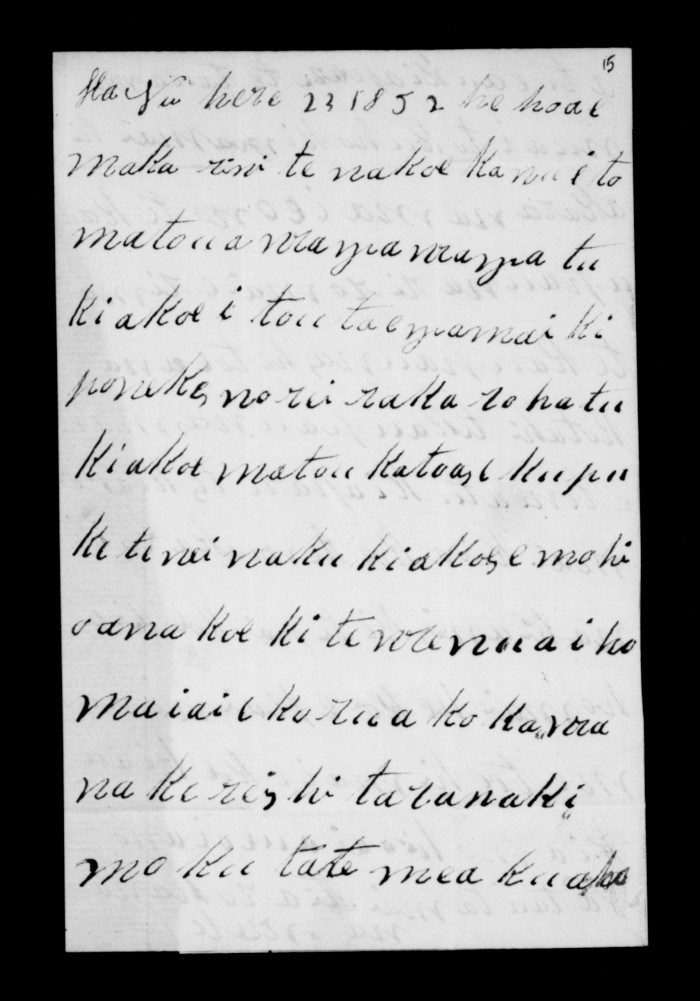 15
here 23 1852 he hoae
maka rini te nakoe ka nui to
matou a wangawanga tu
kiakoe i tou taengamai ki
poneke, no rei raka roha tu
kiakoe matou katoa, e ku pu
ke te nei naku kiakoe, e mohi
oana koe ki te wenua i ho
maiai e korua ko ka, wa
na ke rei, ki taranaki,
mo ku tate mea kua